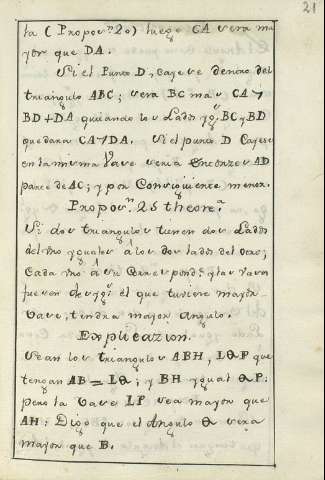 21
ta (Propo.ⁿ 20) luego CA sera ma
yor que DA.
Si el Punto D, cayese dentro del
triangulo ABC; sera BC mas CA >
BD + DA quitando los Lados yg.ˢ BC, y BD
quedara CA > DA. Si el punto D Cayese
en la misma Vase seria entonzes AD
parte de AC; y por Consiguiente menor.
Propo.ⁿ 25 theore.ᵃ
Si dos triangulos tienen dos Lados
del vno yguales á los dos lados del otro;
Cada vno á su Correspond.ᵗᵉ y las vases
fuesen desyg.ˢ el que tuviere mayor
vase, tendra mayor angulo.
Explicazion.
Sean los triangulos ABH, LQP que
tengan AB = LQ; y BH ygual QP:
pero la vase LP sea mayor que
AH: Digo que el Angulo Q sera
mayor que B.